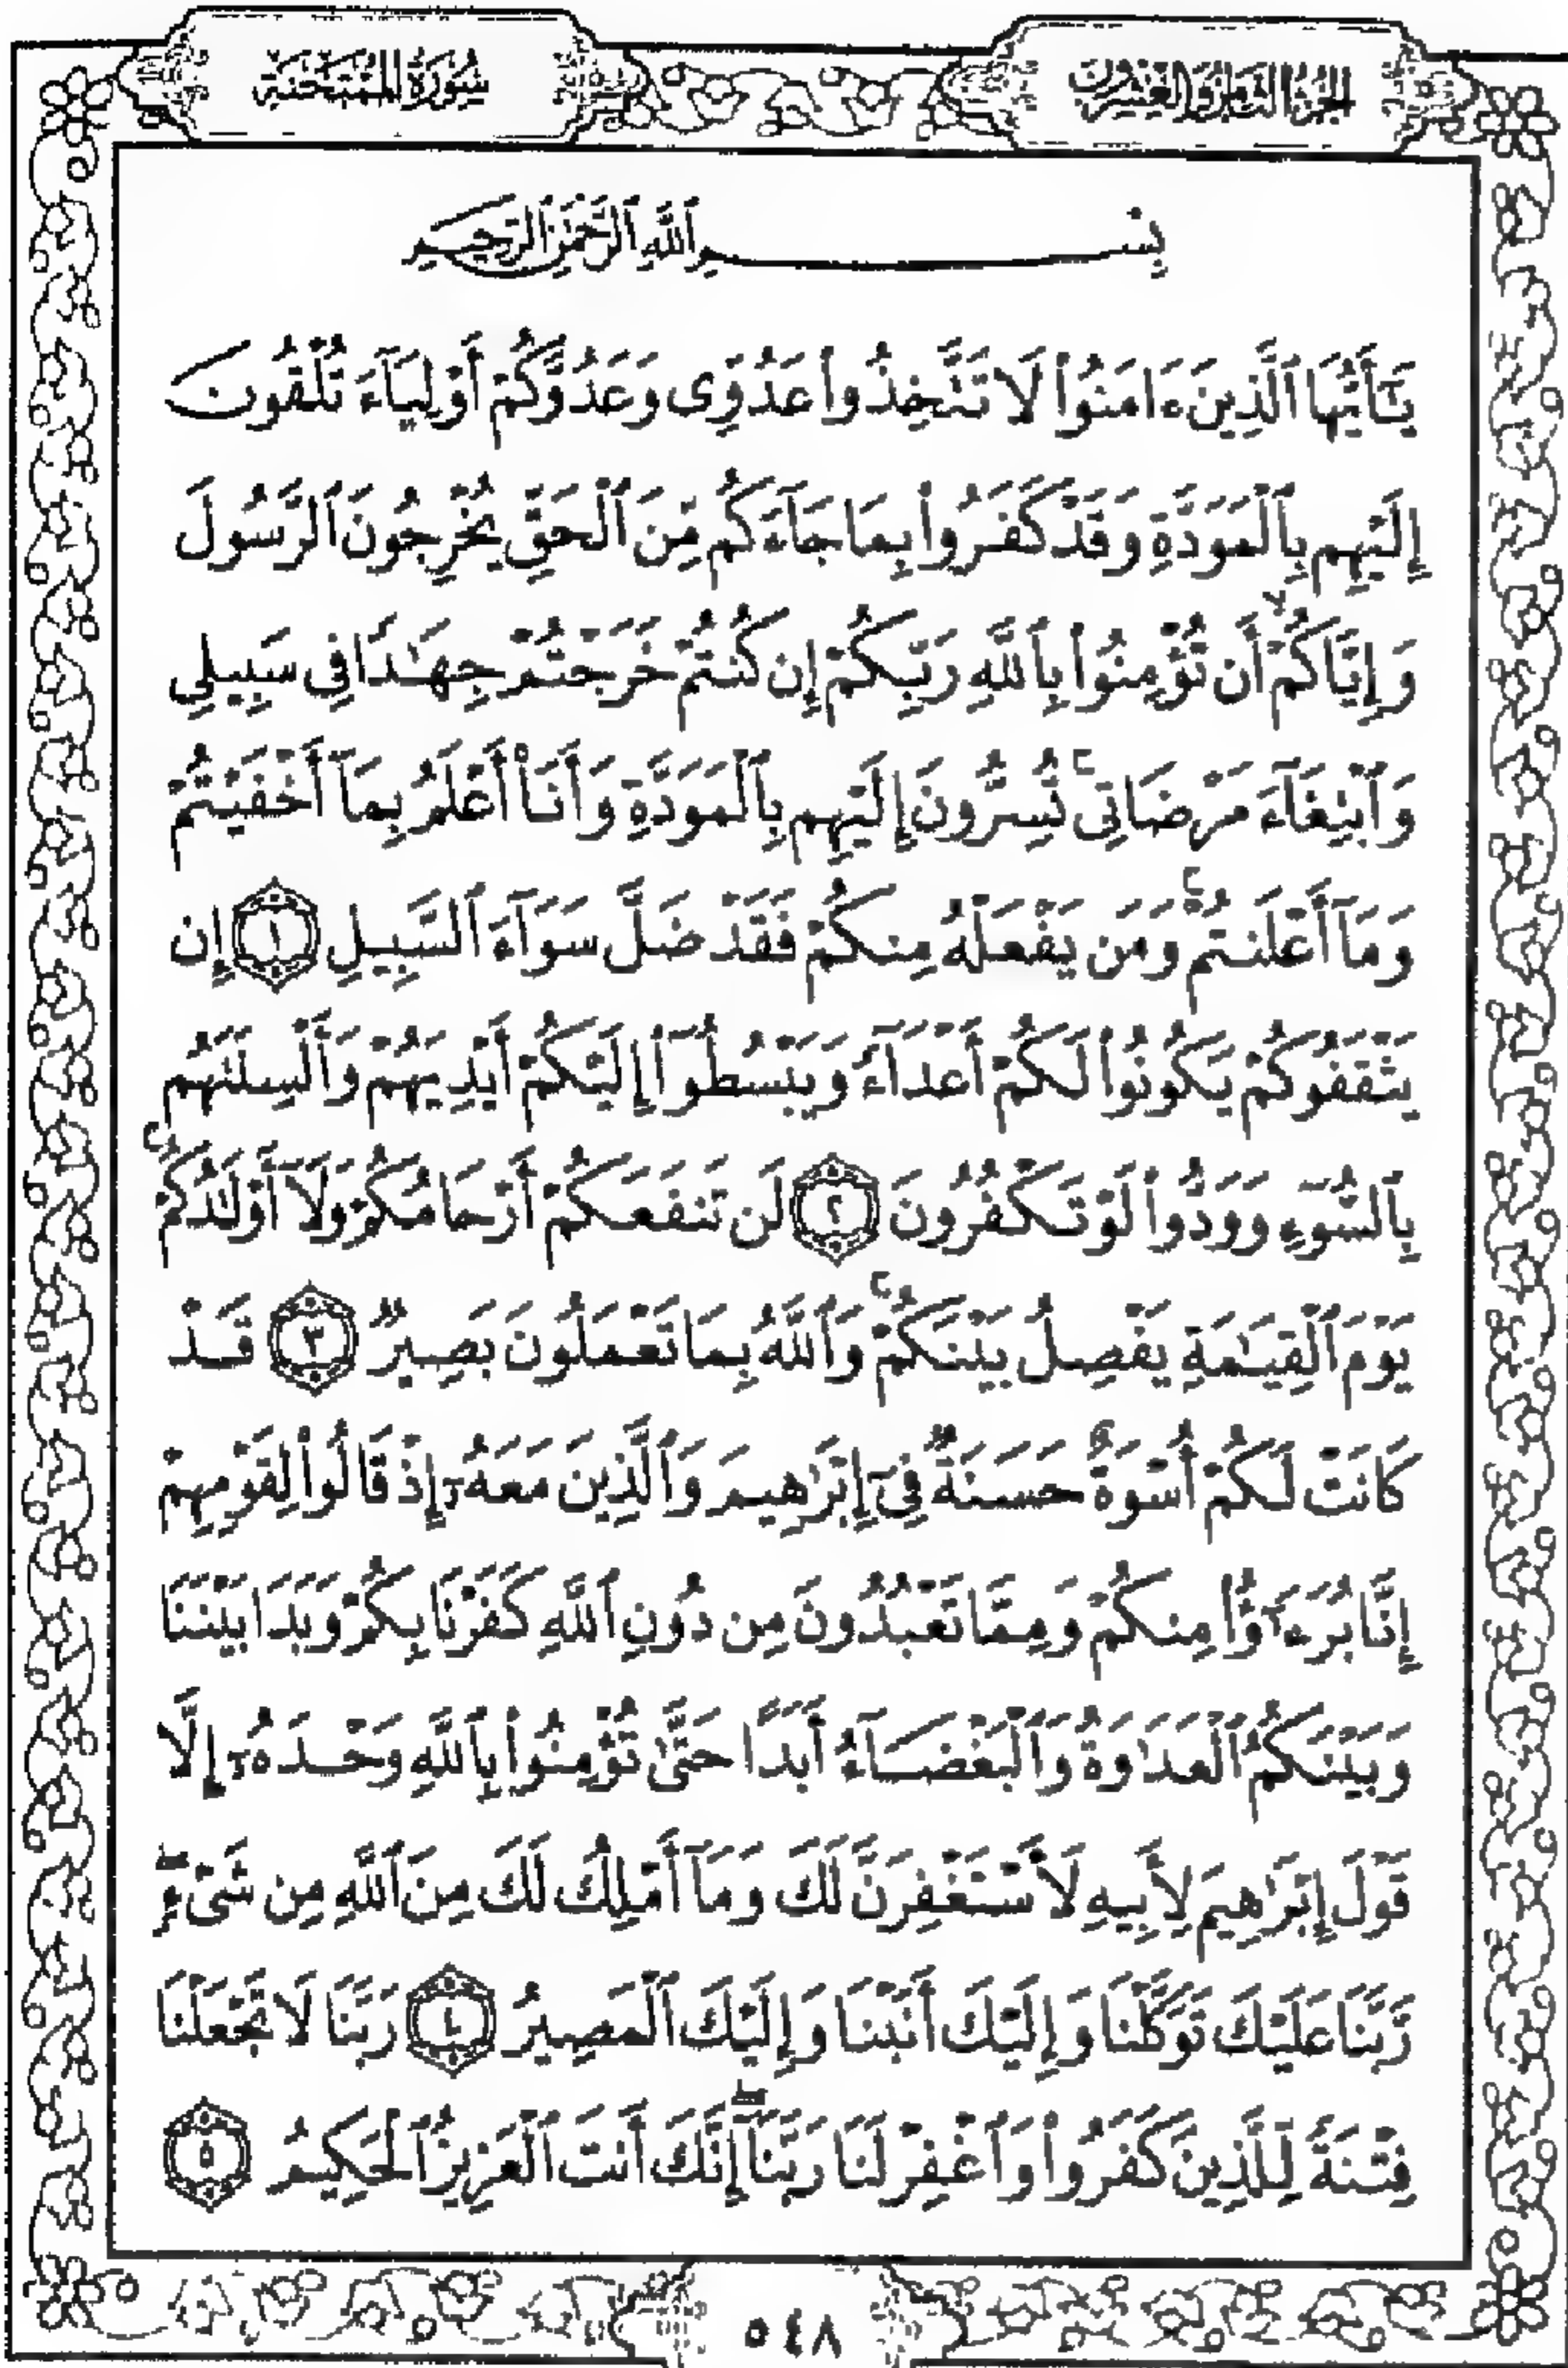 الجزء الثامن والعشرون
سورة الممتحنة
بِسْمِ ٱللَّهِ ٱلرَّحْمَٰنِ ٱلرَّحِيمِ
يَٰٓأَيُّهَا ٱلَّذِينَ ءَامَنُوا۟ لَا تَتَّخِذُوا۟ عَدُوِّى وَعَدُوَّكُمْ أَوْلِيَآءَ تُلْقُونَ
إِلَيْهِم بِٱلْمَوَدَّةِ وَقَدْ كَفَرُوا۟ بِمَا جَآءَكُم مِّنَ ٱلْحَقِّ يُخْرِجُونَ ٱلرَّسُولَ
وَإِيَّاكُمْ ۙ أَن تُؤْمِنُوا۟ بِٱللَّهِ رَبِّكُمْ إِن كُنتُمْ خَرَجْتُمْ جِهَٰدًا فِى سَبِيلِى
وَٱبْتِغَآءَ مَرْضَاتِى ۚ تُسِرُّونَ إِلَيْهِم بِٱلْمَوَدَّةِ وَأَنَا۠ أَعْلَمُ بِمَآ أَخْفَيْتُمْ
وَمَآ أَعْلَنتُمْ ۚ وَمَن يَفْعَلْهُ مِنكُمْ فَقَدْ ضَلَّ سَوَآءَ ٱلسَّبِيلِ ١ إِن
يَثْقَفُوكُمْ يَكُونُوا۟ لَكُمْ أَعْدَآءً وَيَبْسُطُوٓا۟ إِلَيْكُمْ أَيْدِيَهُمْ وَأَلْسِنَتَهُم
بِٱلسُّوٓءِ وَوَدُّوا۟ لَوْ تَكْفُرُونَ ٢ لَن تَنفَعَكُمْ أَرْحَامُكُمْ وَلَآ أَوْلَٰدُكُمْ ۚ
يَوْمَ ٱلْقِيَٰمَةِ يَفْصِلُ بَيْنَكُمْ ۚ وَٱللَّهُ بِمَا تَعْمَلُونَ بَصِيرٌ ٣ قَدْ
كَانَتْ لَكُمْ أُسْوَةٌ حَسَنَةٌ فِىٓ إِبْرَٰهِيمَ وَٱلَّذِينَ مَعَهُۥٓ إِذْ قَالُوا۟ لِقَوْمِهِمْ
إِنَّا بُرَءَٰٓؤُا۟ مِنكُمْ وَمِمَّا تَعْبُدُونَ مِن دُونِ ٱللَّهِ كَفَرْنَا بِكُمْ وَبَدَا بَيْنَنَا
وَبَيْنَكُمُ ٱلْعَدَٰوَةُ وَٱلْبَغْضَآءُ أَبَدًا حَتَّىٰ تُؤْمِنُوا۟ بِٱللَّهِ وَحْدَهُۥٓ إِلَّا
قَوْلَ إِبْرَٰهِيمَ لِأَبِيهِ لَأَسْتَغْفِرَنَّ لَكَ وَمَآ أَمْلِكُ لَكَ مِنَ ٱللَّهِ مِن شَىْءٍ ۖ
رَّبَّنَا عَلَيْكَ تَوَكَّلْنَا وَإِلَيْكَ أَنَبْنَا وَإِلَيْكَ ٱلْمَصِيرُ ٤ رَبَّنَا لَا تَجْعَلْنَا
فِتْنَةً لِّلَّذِينَ كَفَرُوا۟ وَٱغْفِرْ لَنَا رَبَّنَآ ۖ إِنَّكَ أَنتَ ٱلْعَزِيزُ ٱلْحَكِيمُ ٥
٥٤٨